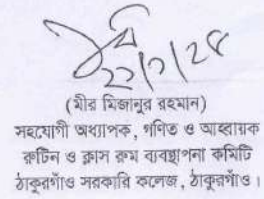 ২২/১/২৫
(মীর মিজানুর রহমান)
সহযোগী অধ্যাপক, গণিত ও আহবায়ক
রুটিন ও ক্লাস রুম ব্যবস্থাপনা কমিটি
ঠাকুরগাঁও সরকারি কলেজ, ঠাকুরগাঁও।